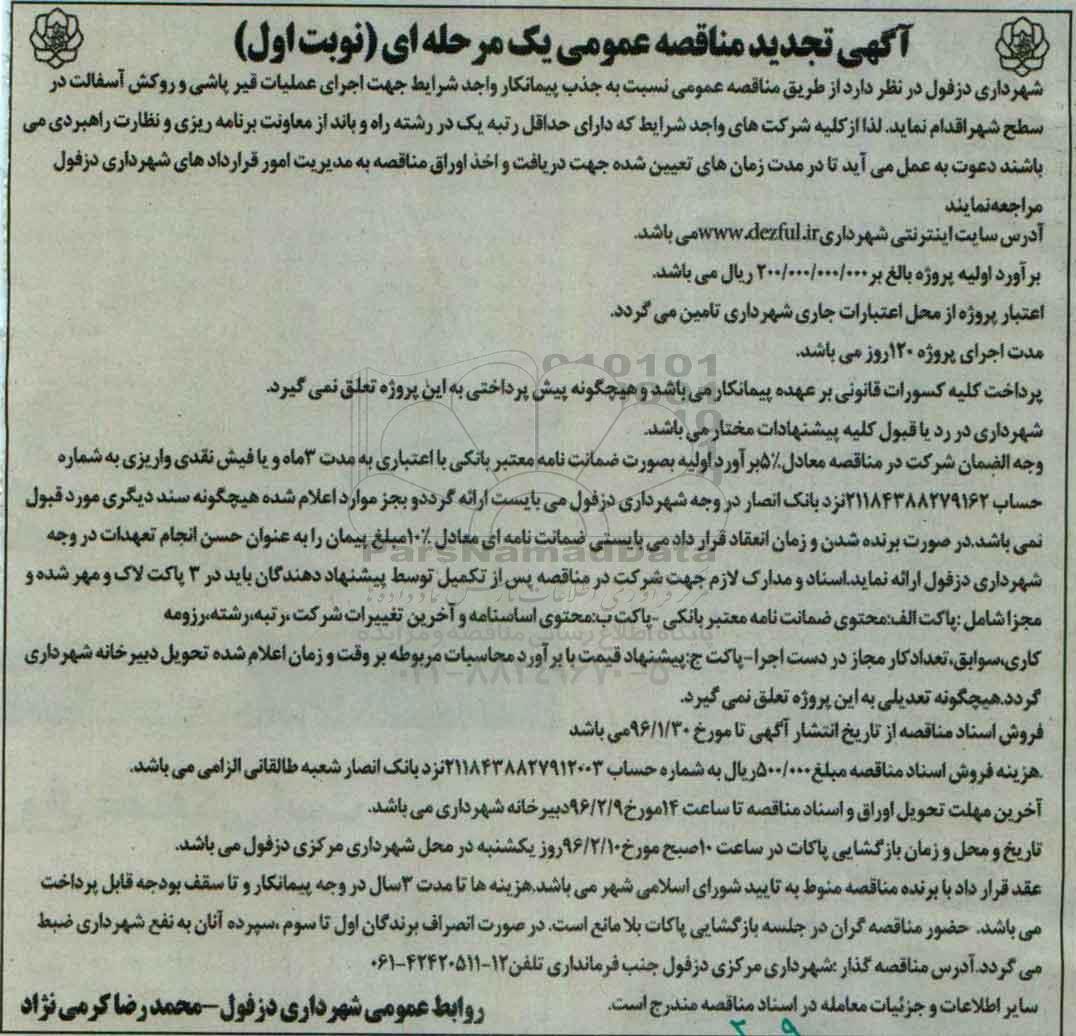 آگهی تجدید مناقصه عمومی یک مرحله ای (نوبت اول)
شهرداری دزفول در نظر دارد از طریق مناقصه عمومی نسبت به جذب پیمانکار واجد شرایط جهت اجرای عملیات قیر پاشی و روکش آسفالت در
سطح شهر اقدام نماید. لذا از کلیه شرکت های واجد شرایط که دارای حداقل رتبه یک در رشته راه و باند از معاونت برنامه ریزی و نظارت راهبردی می
باشند دعوت به عمل می آید تا در مدت زمان های تعیین شده جهت دریافت و اخذ اوراق مناقصه به مدیریت امور قرارداد های شهرداری دزفول
مراجعه نمایند
آدرس سایت اینترنتی شهرداری www.dezful.ir می باشد.
برآورد اولیه پروژه بالغ بر ۲۰۰/۰۰۰/۰۰۰/۰۰۰ ریال می باشد.
اعتبار پروژه از محل اعتبارات جاری شهرداری تامین می گردد.
مدت اجرای پروژه ۱۲۰روز می باشد.
پرداخت کلیه کسورات قانونی بر عهده پیمانکار می باشد و هیچگونه پیش پرداختی به این پروژه تعلق نمی گیرد.
شهرداری در رد یا قبول کلیه پیشنهادات مختار می باشد.
وجه الضمان شرکت در مناقصه معادل ۵٪برآورد اولیه بصورت ضمانت نامه معتبر بانکی با اعتباری به مدت ۳ماه و یا فیش نقدی واریزی به شماره
حساب ۲۱۱۸۴۳۸۸۲۷۹۱۶۲نزد بانک انصار در وجه شهرداری دزفول می بایست ارائه گرددو بجز موارد اعلام شده هیچگونه سند دیگری مورد قبول
نمی باشد.در صورت برنده شدن و زمان انعقاد قرار داد می بایستی ضمانت نامه ای معادل ۱۰٪مبلغ پیمان را به عنوان حسن انجام تعهدات در وجه
شهرداری دزفول ارائه نماید.اسناد و مدارک لازم جهت شرکت در مناقصه پس از تکمیل توسط پیشنهاد دهندگان باید در ۳ پاکت لاک و مهر شده و
مجزا شامل :پاکت الف:محتوی ضمانت نامه معتبر بانکی -پاکت ب:محتوی اساسنامه و آخرین تغییرات شرکت ،رتبه،رشته،رزومه
کاری،سوابق،تعدادکار مجاز در دست اجرا-پاکت ج:پیشنهاد قیمت با برآورد محاسبات مربوطه بر وقت و زمان اعلام شده تحویل دبیرخانه شهرداری
گردد.هیچگونه تعدیلی به این پروژه تعلق نمی گیرد.
فروش اسناد مناقصه از تاریخ انتشار آگهی تا مورخ ۹۶/۱/۳۰می باشد
.هزینه فروش اسناد مناقصه مبلغ ۵۰۰/۰۰۰ریال به شماره حساب ۲۱۱۸۴۳۸۸۲۷۹۱۲۰۰۳نزد بانک انصار شعبه طالقانی الزامی می باشد.
آخرین مهلت تحویل اوراق و اسناد مناقصه تا ساعت ۱۴مورخ ۹۶/۲/۹دبیرخانه شهرداری می باشد.
تاریخ و محل و زمان بازگشایی پاکات در ساعت ۱۰صبح مورخ ۹۶/۲/۱۰روز یکشنبه در محل شهرداری مرکزی دزفول می باشد.
عقد قرار داد با برنده مناقصه منوط به تایید شورای اسلامی شهر می باشد.هزینه ها تا مدت ۳سال در وجه پیمانکار و تا سقف بودجه قابل پرداخت
می باشد. حضور مناقصه گران در جلسه بازگشایی پاکات بلا مانع است. در صورت انصراف برندگان اول تا سوم ،سپرده آنان به نفع شهرداری ضبط
می گردد.آدرس مناقصه گذار :شهرداری مرکزی دزفول جنب فرمانداری تلفن ۱۲-۴۲۴۲۰۵۱۱-۰۶۱
سایر اطلاعات و جزئیات معامله در اسناد مناقصه مندرج است.
روابط عمومی شهرداری دزفول-محمدرضا کرمی نژاد
ParsNamadData
پایگاه اطلاع رسانی مناقصه و مزایده
۰۲۱-۸۸۳۴۹۶۷۰-۵
۳ ۹